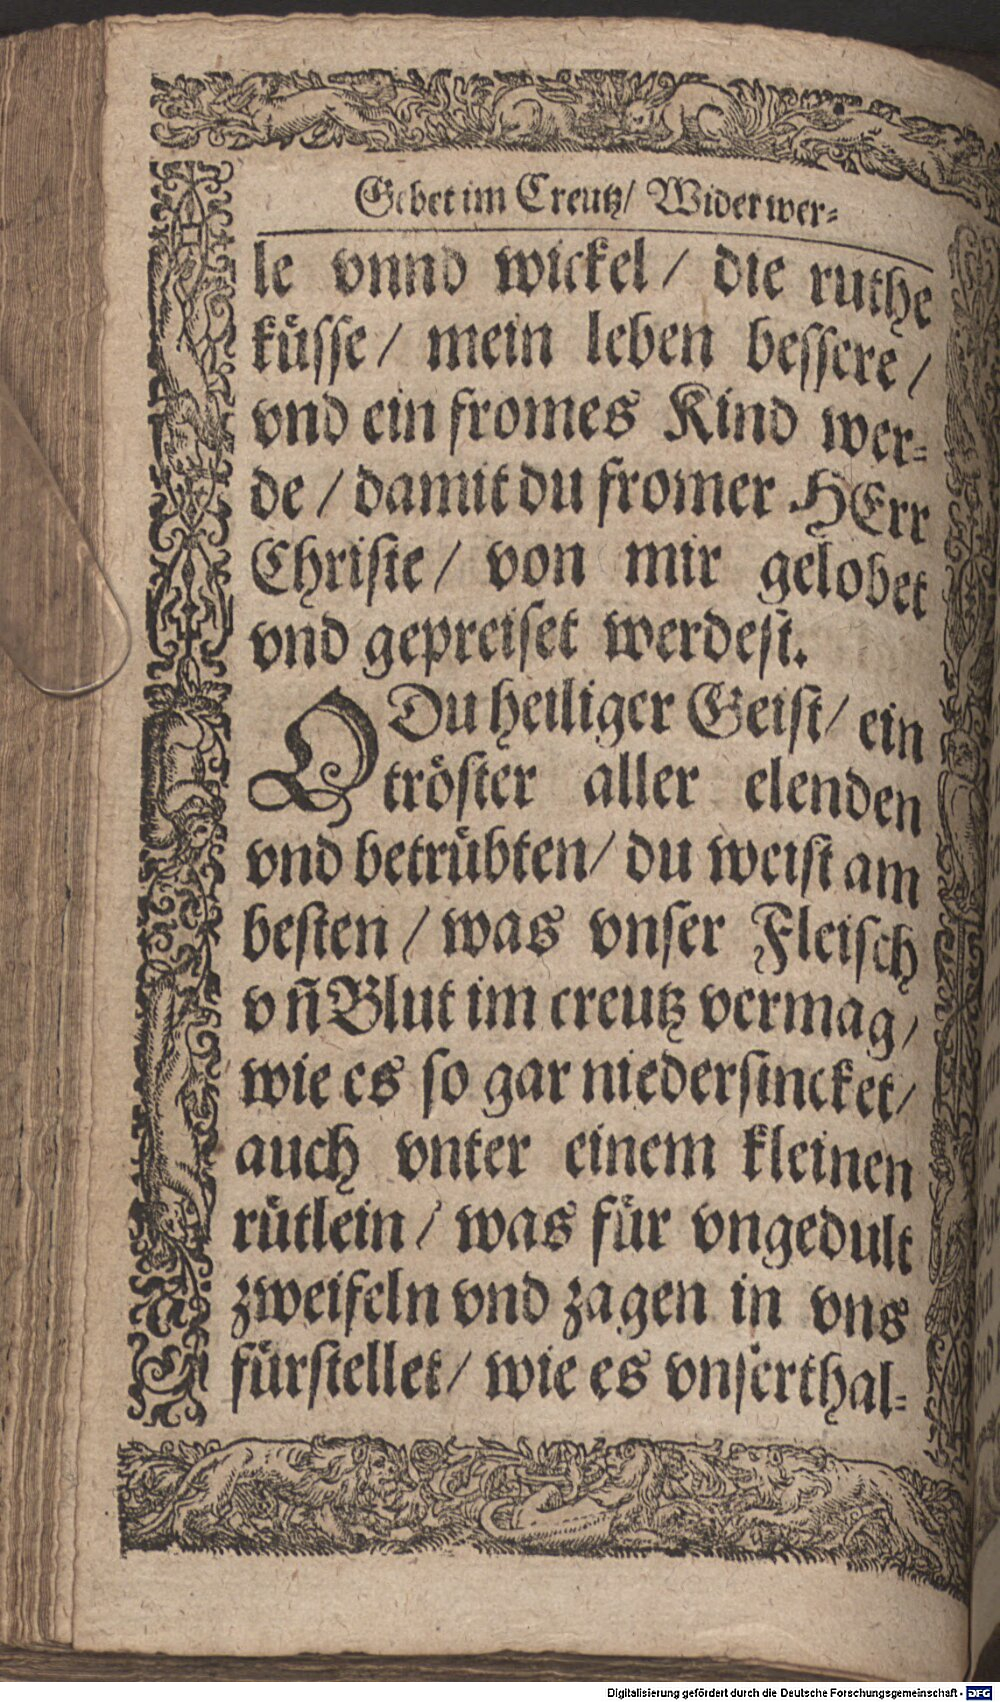 Gebet im Creutz/ Widerwer-
le vnnd wickel / die ruthe
küsse / mein leben bessere /
vnd ein fromes Kind wer-
de / damit du fromer HErr
Christe / von mir gelobet
vnd gepreiset werdest.
O Du heiliger Geist/ ein
tröster aller elenden
vnd betrübten/ du weist am
besten / was vnser Fleisch
vñ Blut im creutz vermag/
wie es so gar niedersincket/
auch vnter einem kleinen
rütlein / was für vngedult
zweifeln vnd zagen in vns
fürstellet/ wie es vnserthal-
Digitalisierung gefördert durch die Deutsche Forschungsgemeinschaft - DFG